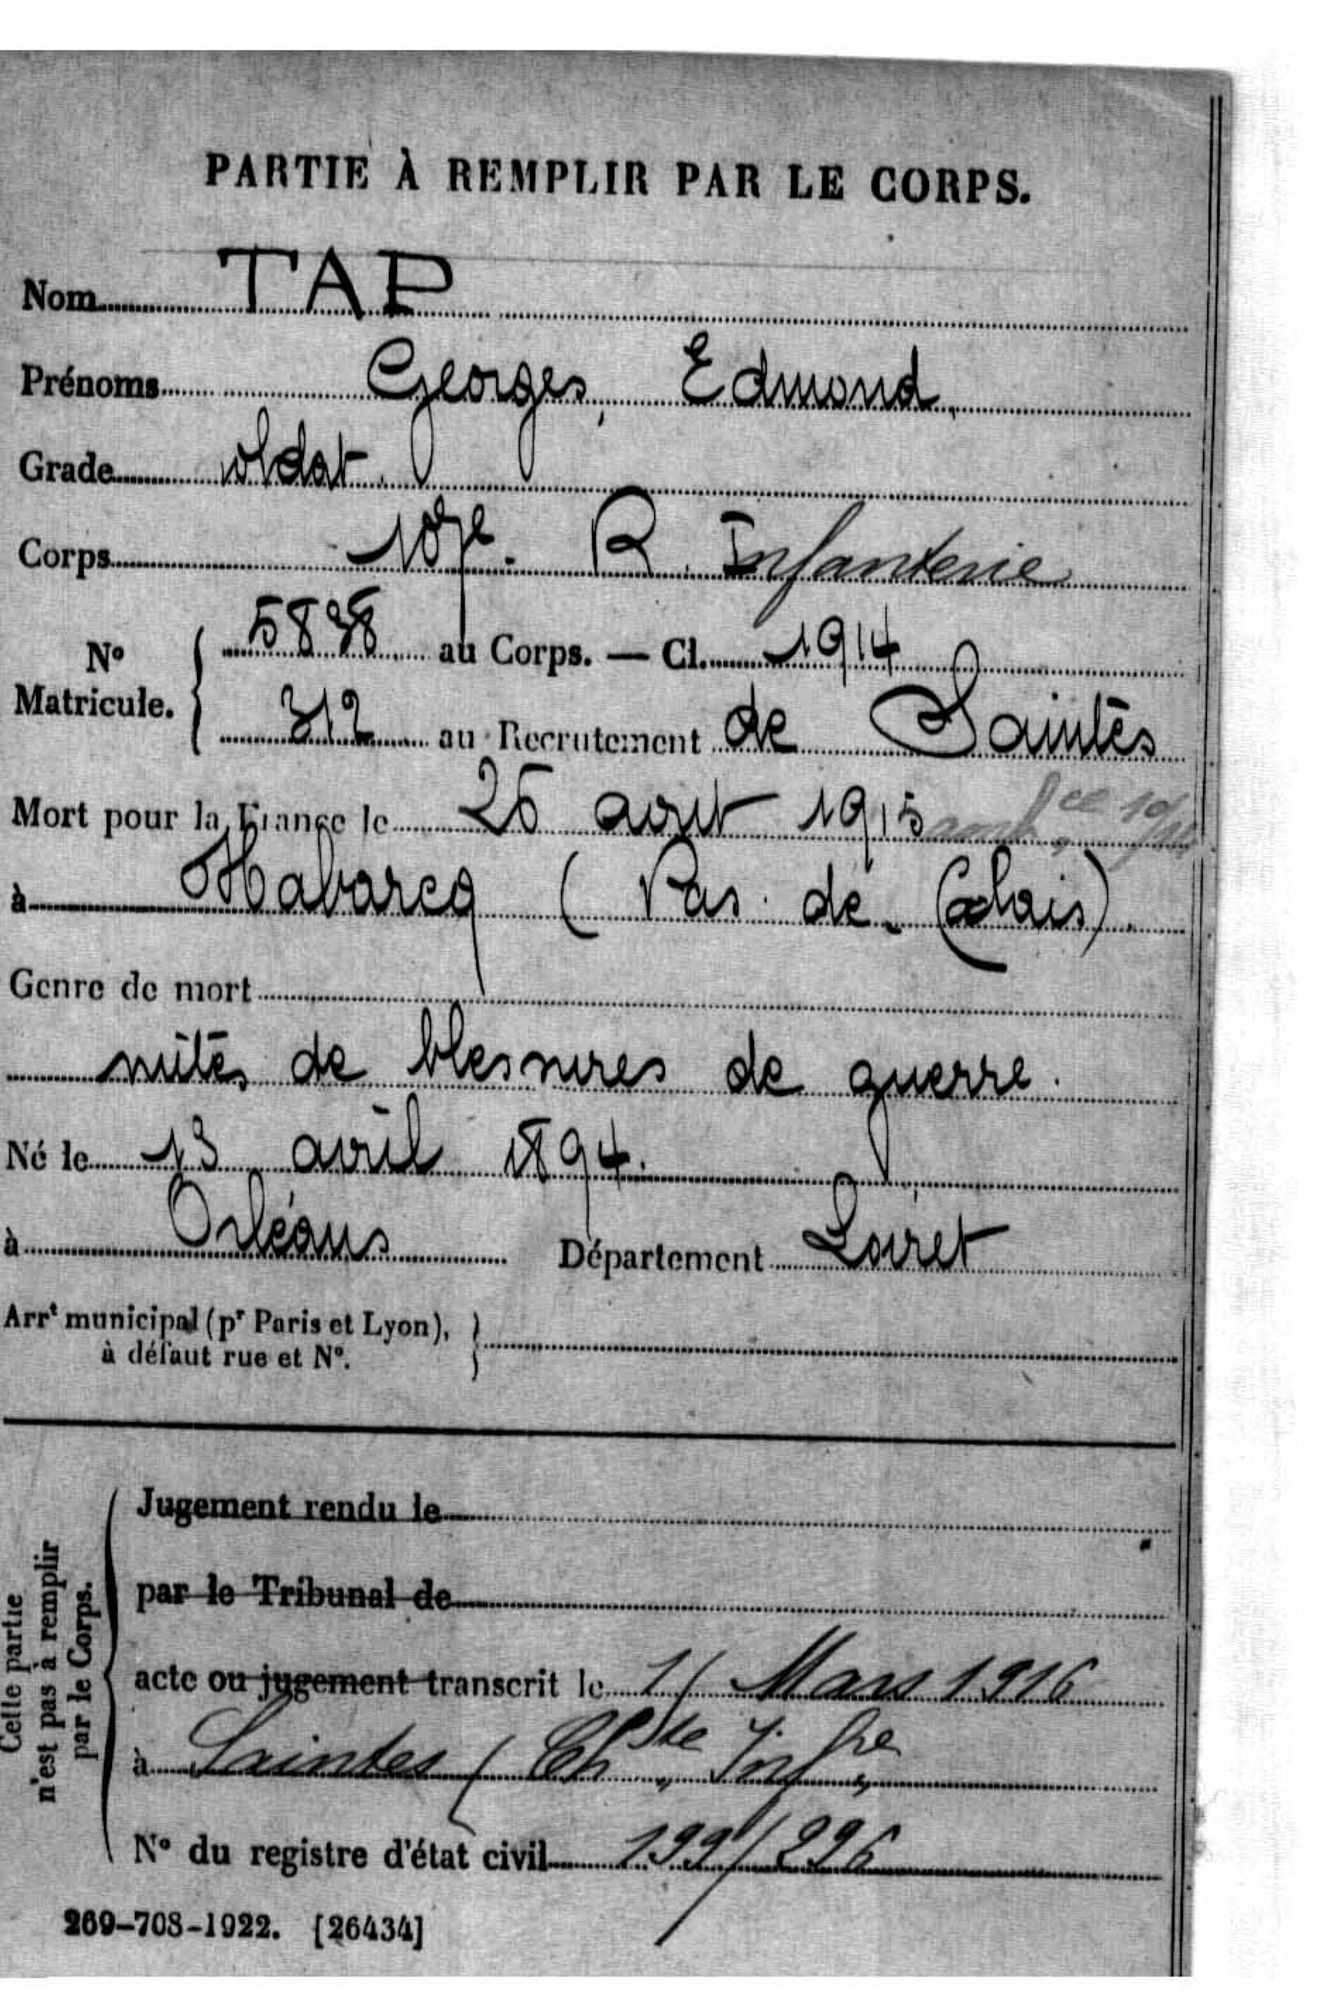 PARTIE À REMPLIR PAR LE CORPS.
Nom TAP
Prénoms Georges, Edmond,
Grade soldat.
Corps 107e. R. Infanterie
No Matricule. { 5838 au Corps. — Cl. 1914
312 au Recrutement de Saintes
Mort pour la France le 26 août 1915
à Habarcq (Pas-de-Calais).
Genre de mort
suites de blessures de guerre.
Né le 13 avril 1894.
à Orléans Département Loiret
Arrt municipal (pr Paris et Lyon), }
à défaut rue et No.
Cette partie
n'est pas à remplir
par le Corps.
Jugement rendu le
par le Tribunal de
acte ou jugement transcrit le 11 Mars 1916
à Saintes (Chte Infre
No du registre d'état civil 199/296
269-708-1922. [26434]